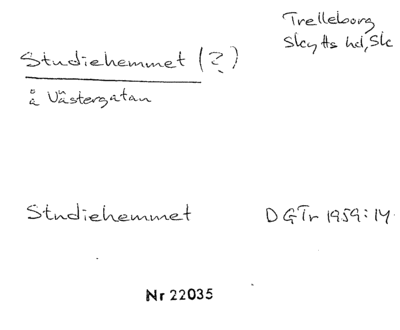 Trelleborg
Skytts hd, Sk
Studiehemmet (?)
å Västergatan
Studiehemmet DGTr 1959:14
Nr 22035